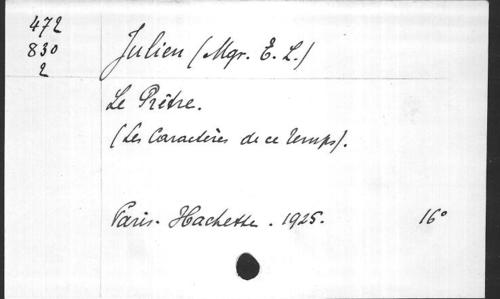 472
830
2
Julien (Mgr. E. L.)
Le Prêtre.
(Les Caractères de ce temps).
Paris. Hachette. 1925. 16°